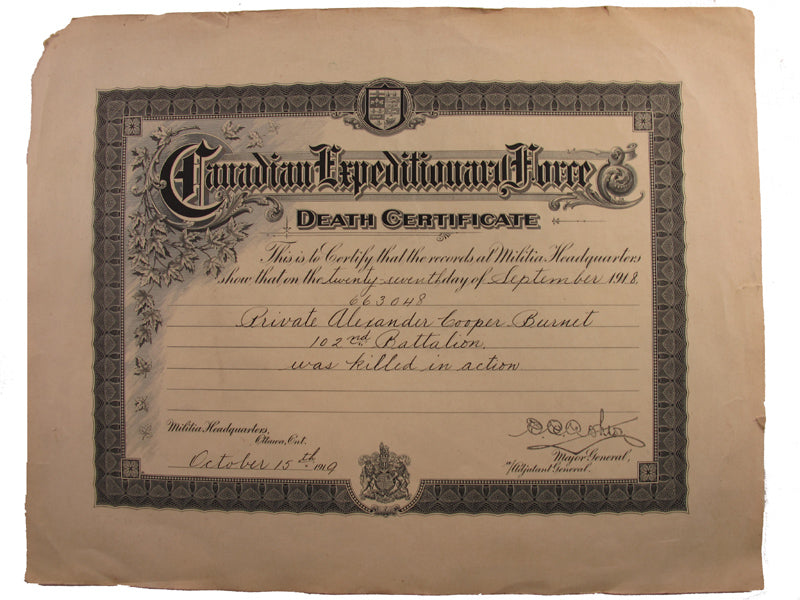 Canadian Expeditionary Force
DEATH CERTIFICATE
This is to Certify that the records at Militia Headquarters
show that on the twenty-seventh day of September 1918,
663048
Private Alexander Cooper Burnet
102nd Battalion,
was killed in action
Militia Headquarters,
Ottawa, Ont.
October 15th 1919
Major General,
Adjutant General.